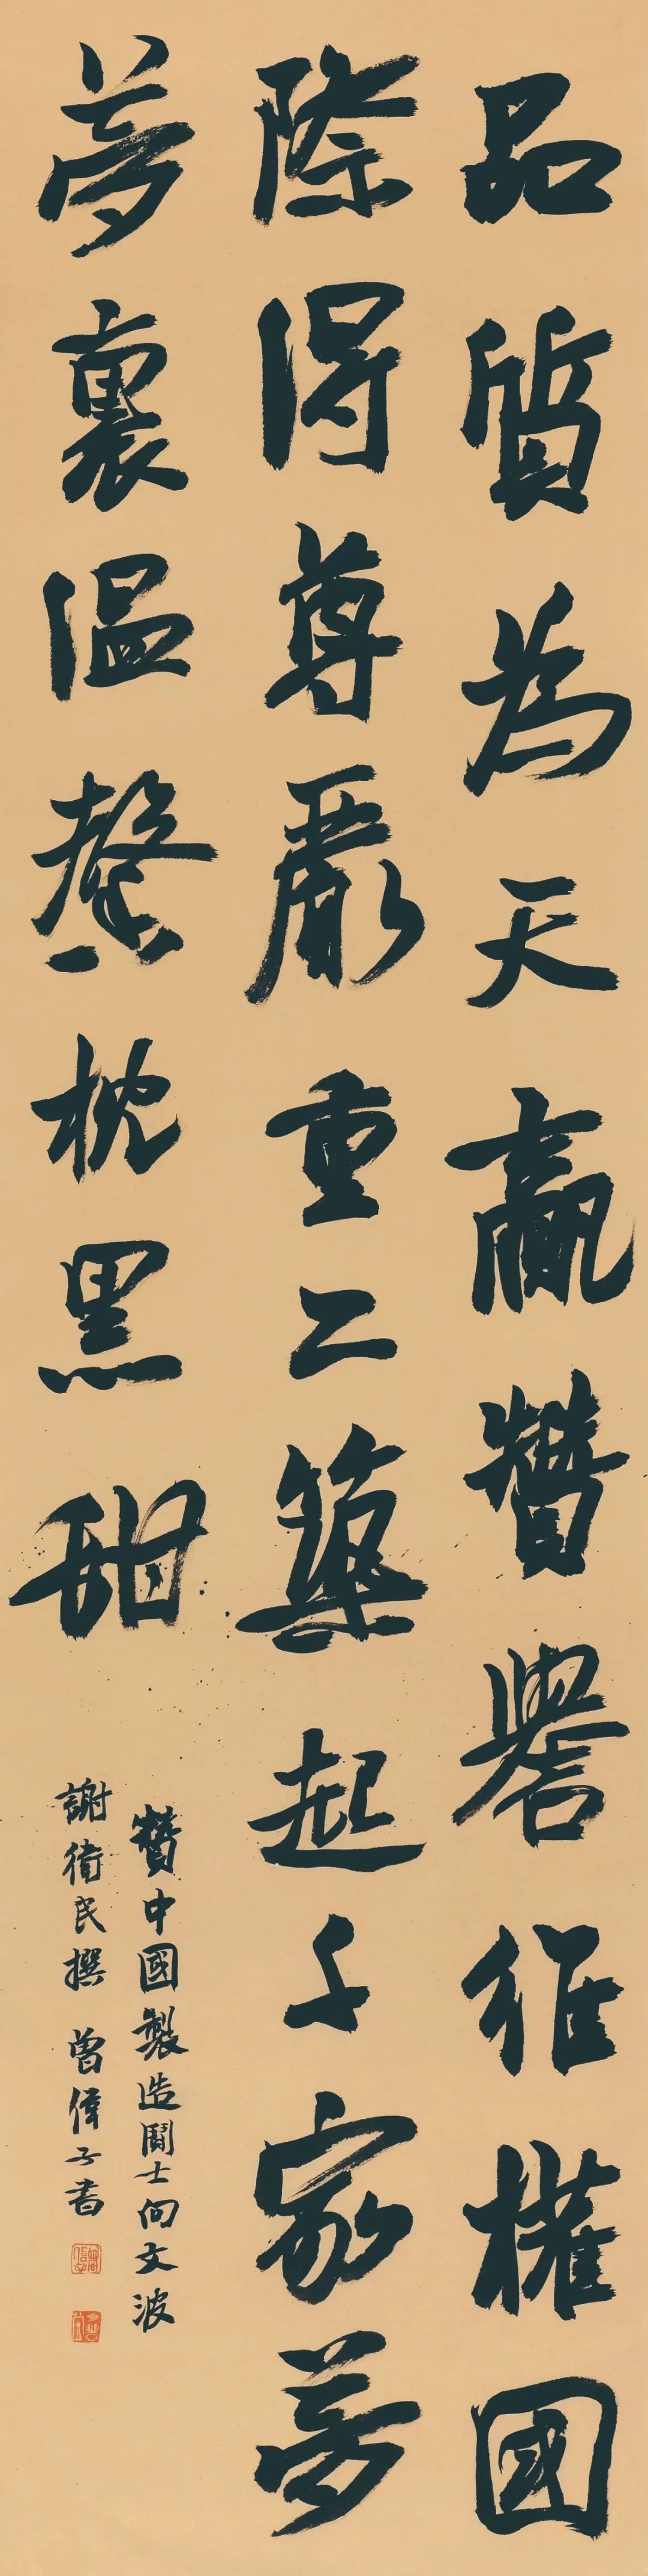 品質為天贏贊譽維權國
際得尊嚴重工築起千家夢
夢裏温馨枕黑甜
贊中國製造鬪士向文波
謝衛民撰 曾偉子書